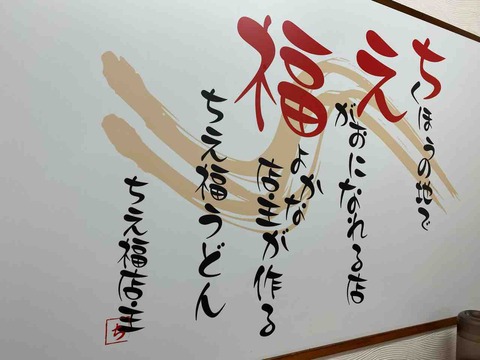 ちくほうの地で
えがおになれる店
福よかな店主が作る
ちえ福うどん
ちえ福店主
ち